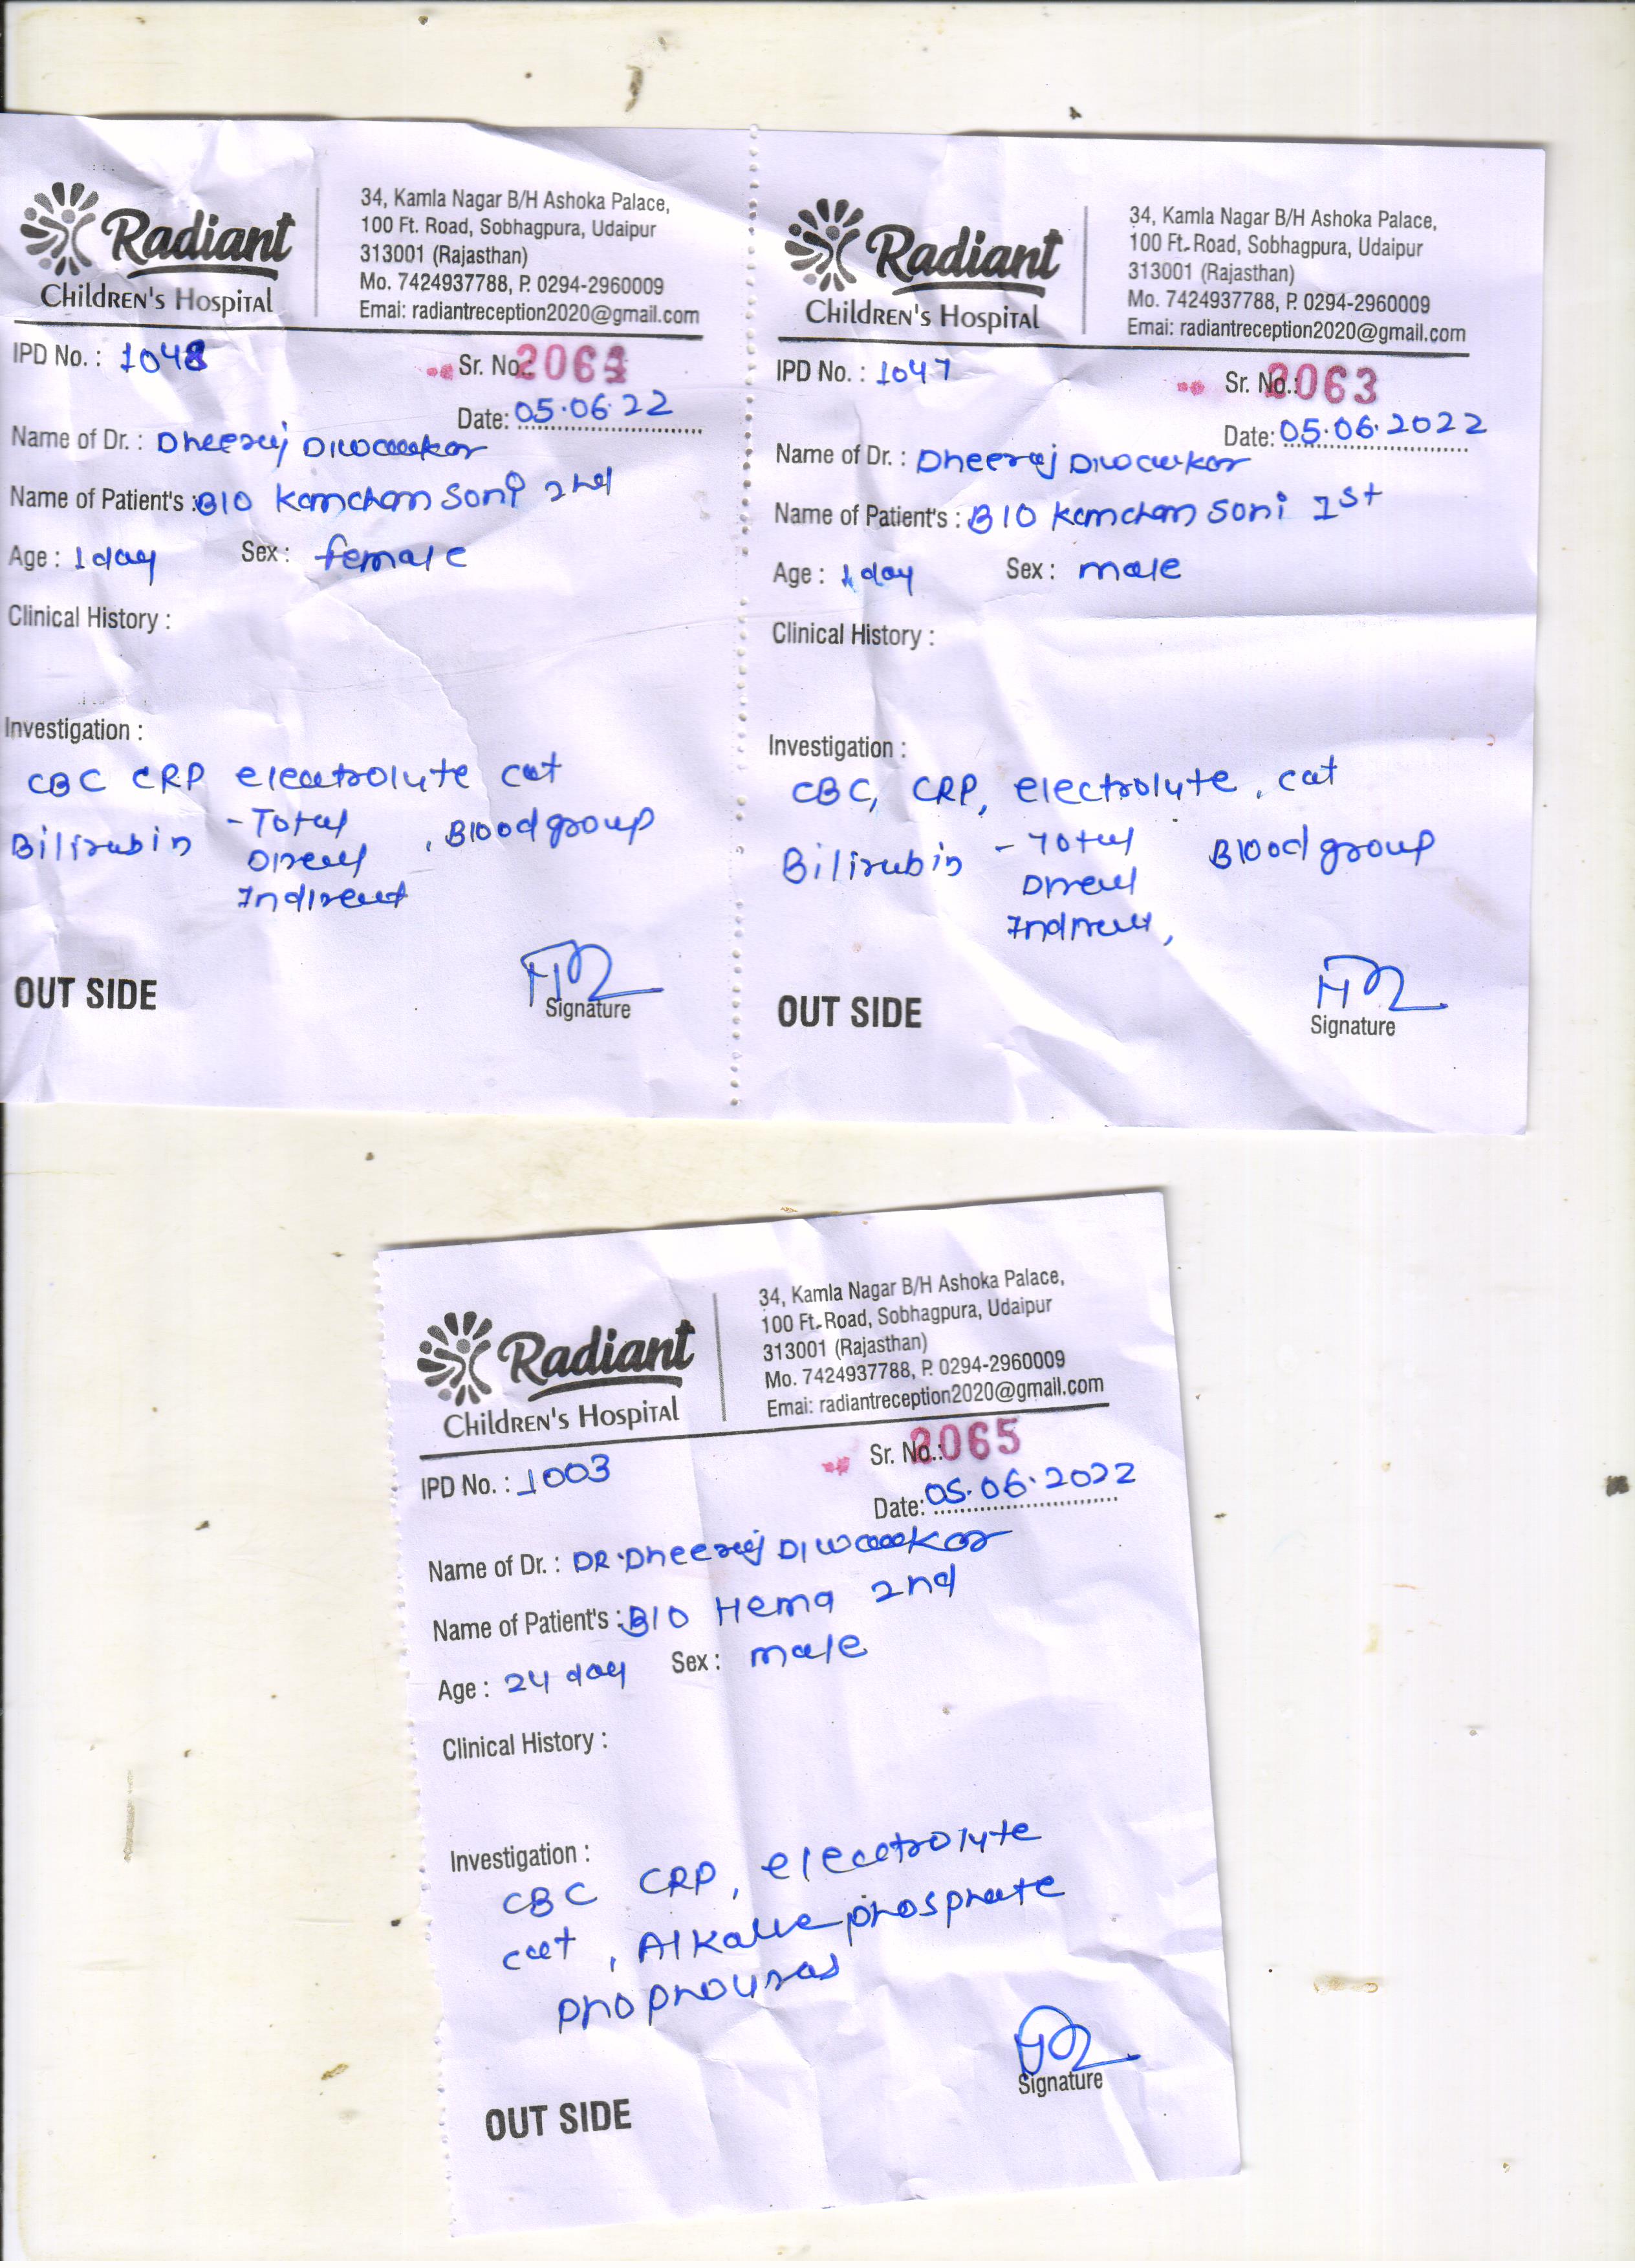 Radiant
Children's Hospital
34, Kamla Nagar B/H Ashoka Palace,
100 Ft. Road, Sobhagpura, Udaipur
313001 (Rajasthan)
Mo. 7424937788, P. 0294-2960009
Emai: radiantreception2020@gmail.com
IPD No. : 1048
Sr. No.: 2064
Date: 05.06.22
Name of Dr. : Dheeraj Diwakar
Name of Patient's : B/O Kanchan Soni 2nd
Age : 1 day Sex : female
Clinical History :
Investigation :
CBC CRP electrolyte cat
Bilirubin - Total , Blood group
Direct
Indirect
OUT SIDE
Signature
Radiant
Children's Hospital
34, Kamla Nagar B/H Ashoka Palace,
100 Ft. Road, Sobhagpura, Udaipur
313001 (Rajasthan)
Mo. 7424937788, P. 0294-2960009
Emai: radiantreception2020@gmail.com
IPD No. : 1047
Sr. No.: 2063
Date: 05.06.2022
Name of Dr. : Dheeraj Diwakar
Name of Patient's : B/O Kanchan Soni 1st
Age : 1 day Sex : male
Clinical History :
Investigation :
CBC, CRP, electrolyte, cat
Bilirubin - Total Blood group
Direct
Indirect,
OUT SIDE
Signature
Radiant
Children's Hospital
34, Kamla Nagar B/H Ashoka Palace,
100 Ft. Road, Sobhagpura, Udaipur
313001 (Rajasthan)
Mo. 7424937788, P. 0294-2960009
Emai: radiantreception2020@gmail.com
IPD No. : 1003
Sr. No.: 2065
Date: 05.06.2022
Name of Dr. : DR. Dheeraj Diwakar
Name of Patient's : B/O Hema 2nd
Age : 24 day Sex : male
Clinical History :
Investigation :
CBC CRP, electrolyte
cat , phosphate
OUT SIDE
Signature